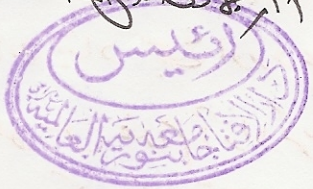 رئیس
دارالافتاء جامعه بنوریة العالمیة